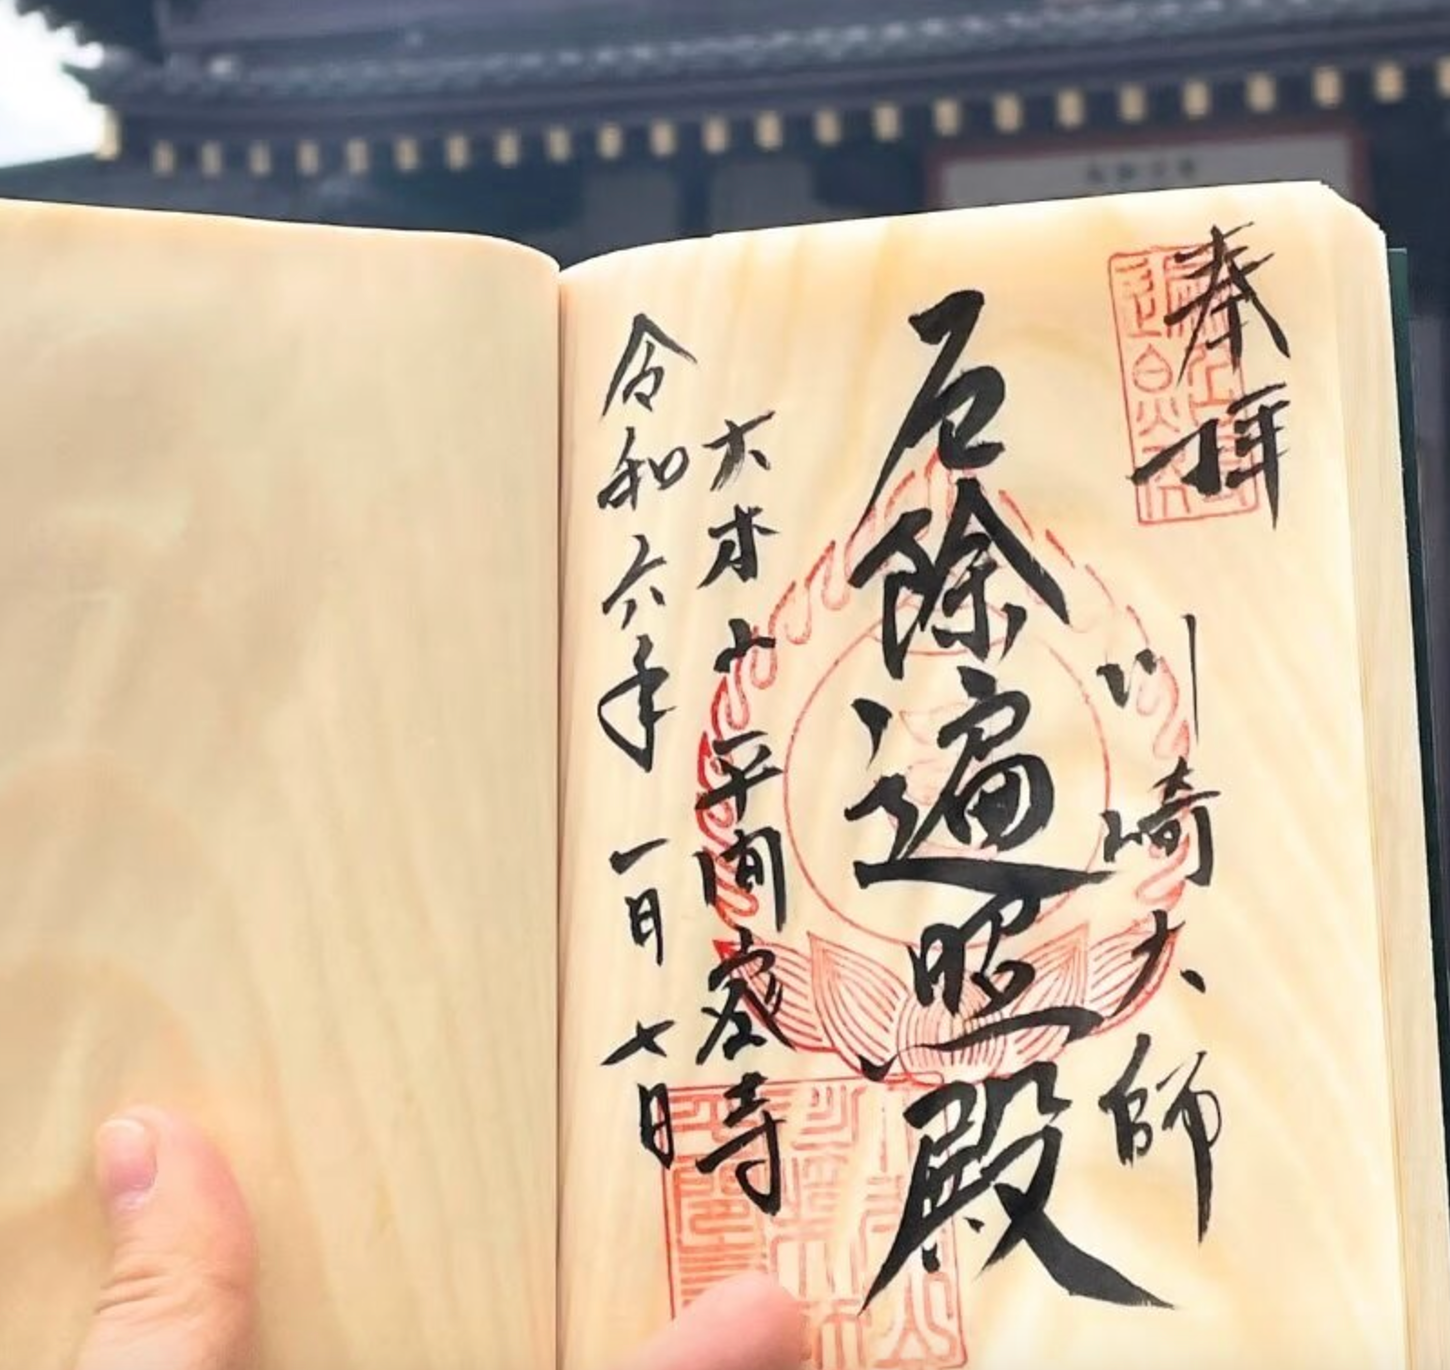 奉拝
川崎大師
厄除遍照殿
大本山 平間寺
令和六年一月七日